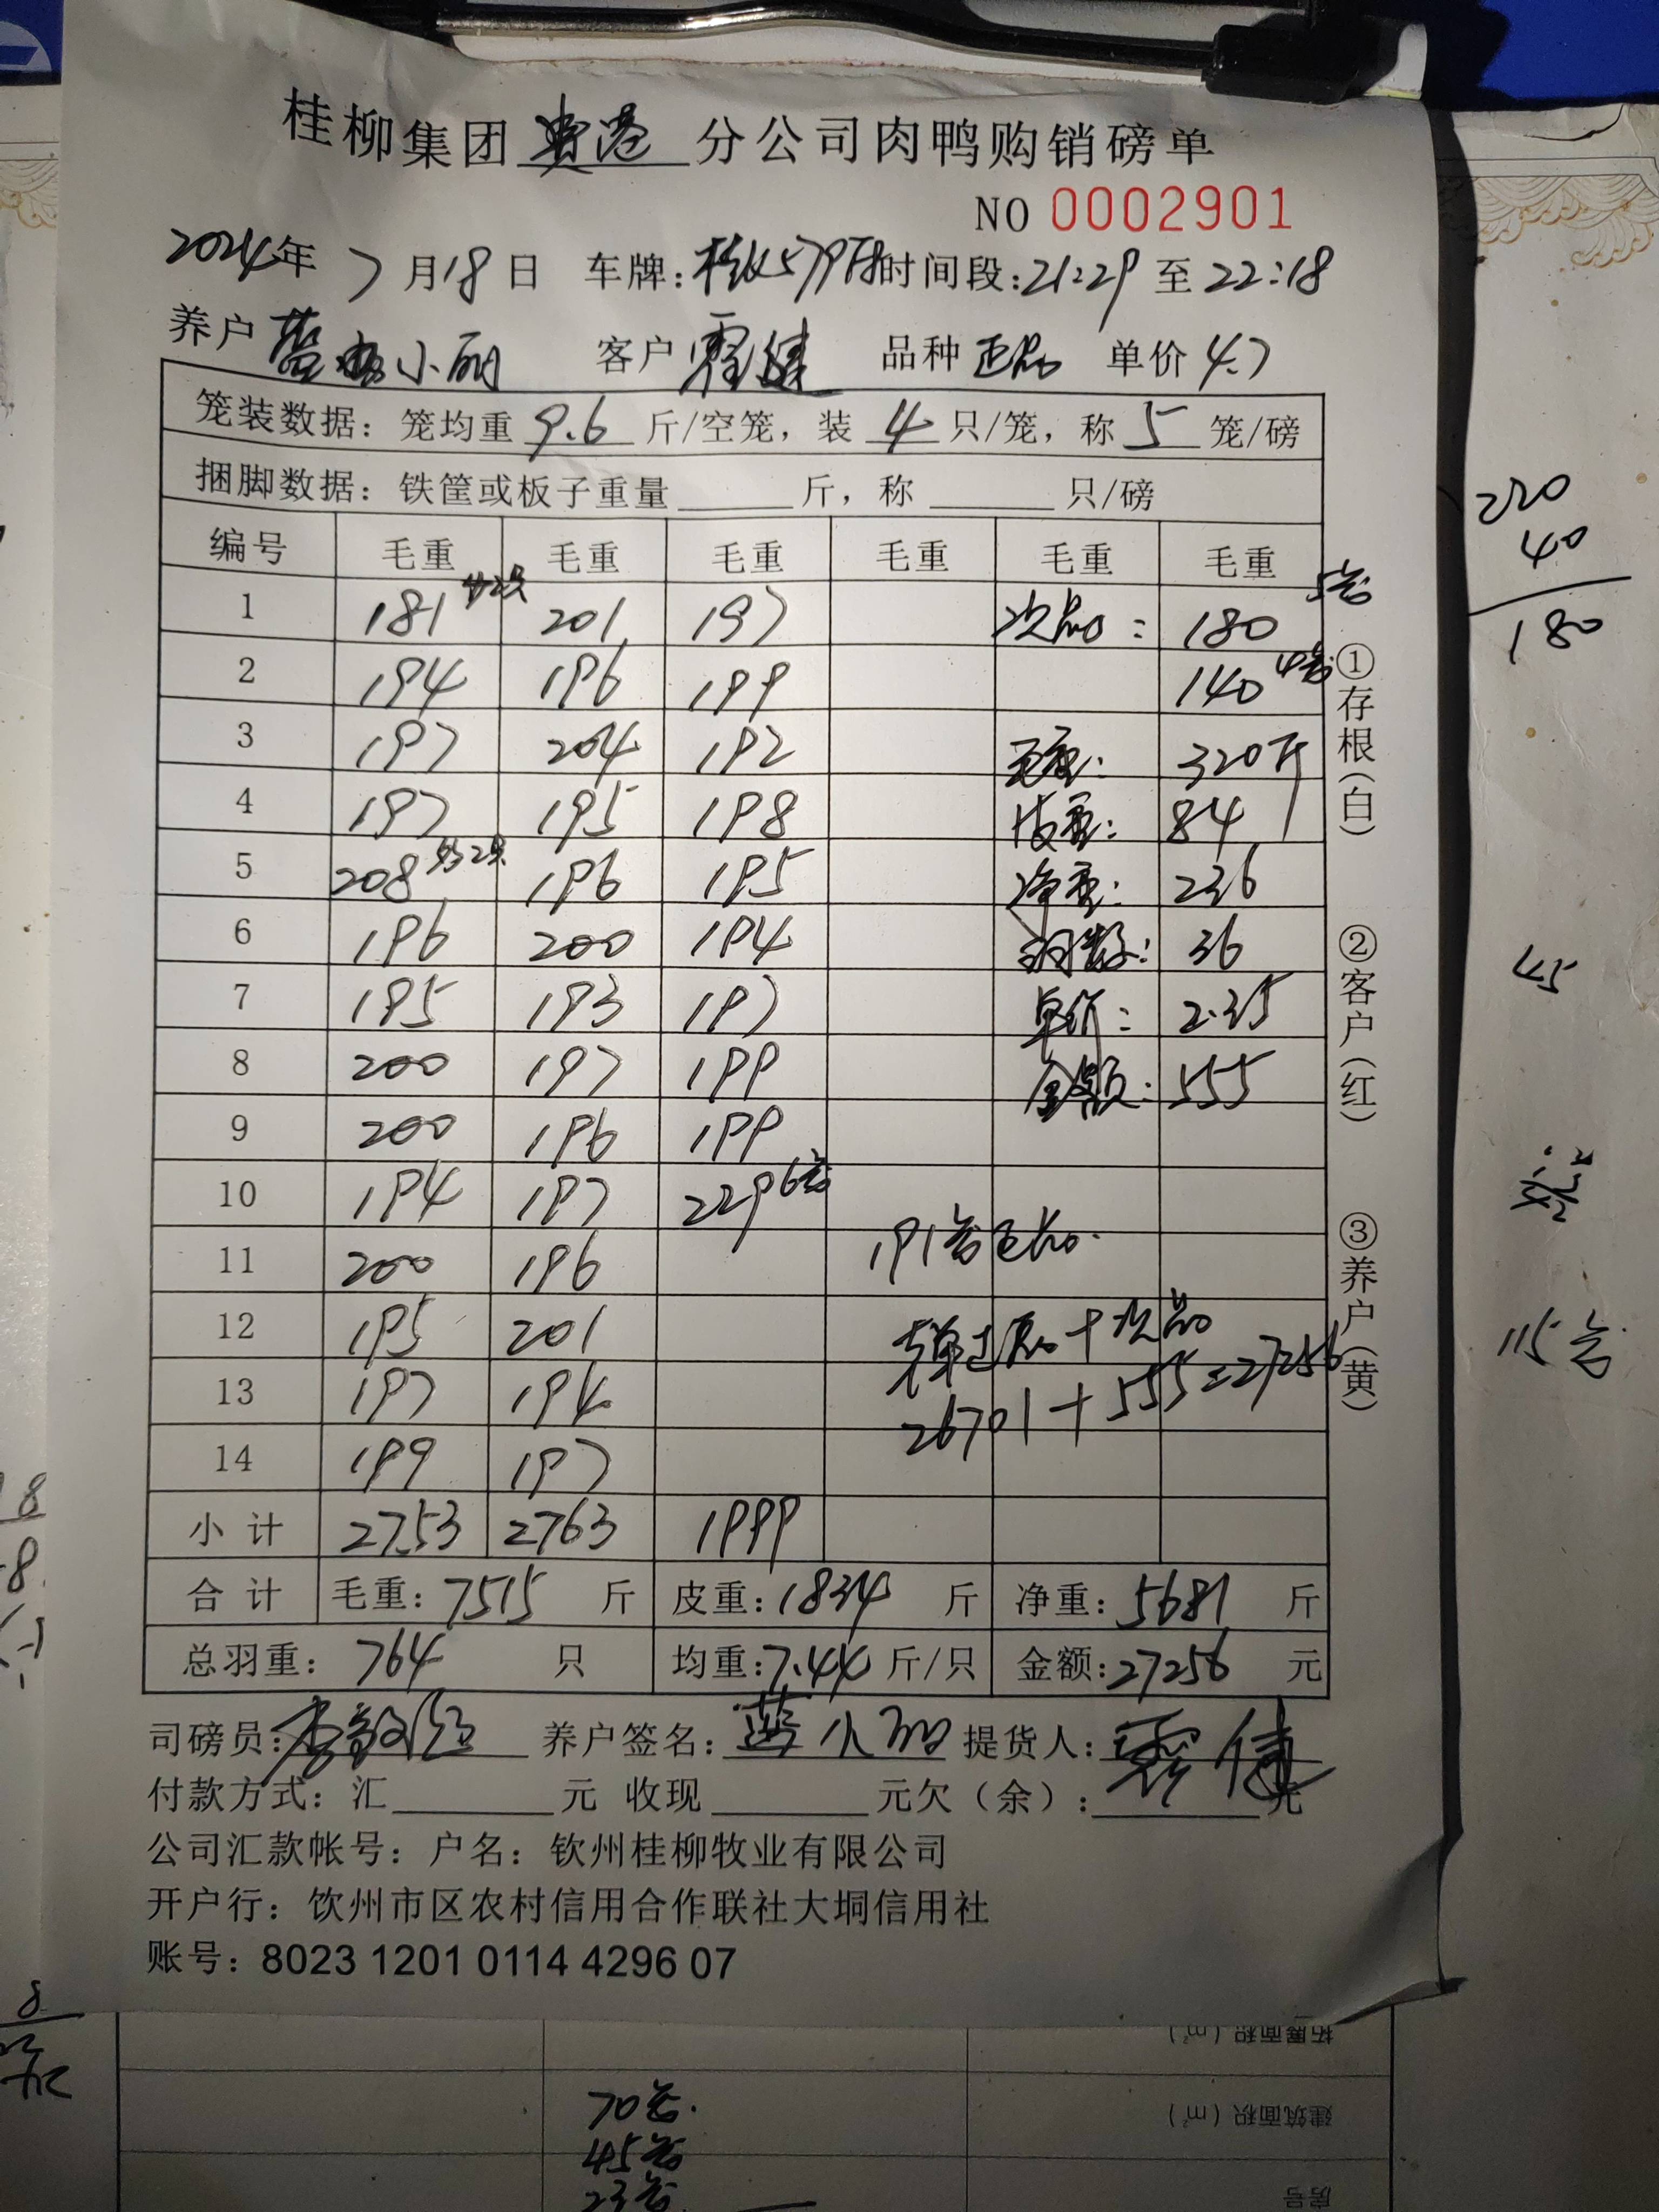 桂柳集团贵港分公司肉鸭购销磅单
NO 0002901
2024年 7月18日 车牌: 时间段:21:29 至 22:18
养户 小丽 客户 霍健 品种 正品 单价 4.7
笼装数据：笼均重 9.6 斤/空笼，装 4 只/笼，称 5 笼/磅
捆脚数据：铁筐或板子重量 斤，称 只/磅
编号 毛重 毛重 毛重 毛重 毛重 毛重
1 181 少2只 201 197 次品: 180 5笼
2 194 196 199 140 4笼
3 197 204 192 毛重: 320斤
4 197 195 198 皮重: 84
5 208 多2只 196 195 净重: 236
6 196 200 194 羽数: 36
7 195 193 197 单价: 2.35
8 200 197 199 金额: 555
9 200 196 199
10 194 197 229 6笼
11 200 196 191笼正品.
12 195 201 正品+次品
13 197 194 26701+555=27256
14 199 197
小计 2753 2763 1999
合计 毛重: 7515 斤 皮重: 1834 斤 净重: 5681 斤
总羽重: 764 只 均重: 7.44 斤/只 金额: 27256 元
司磅员: 养户签名: 小丽 提货人: 霍健
付款方式: 汇 元 收现 元欠（余）: 元
公司汇款帐号：户名：钦州桂柳牧业有限公司
开户行：饮州市区农村信用合作联社大垌信用社
账号：8023 1201 0114 4296 07
①存根(白)
②客户(红)
③养户(黄)
220
40
180
45
115笼
拓展面积（㎡）
建筑面积（㎡）
房号
70笼.
45笼
23笼